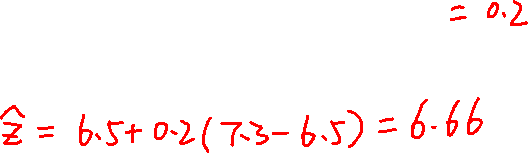 = 0.2
ẑ = 6.5+0.2(7.3-6.5)=6.66